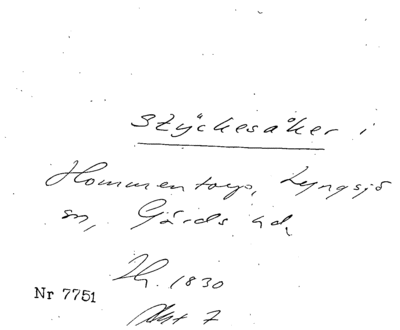 Styckesåker i
Hommentorp, Lyngsjö
sn, Gärds hd,
Nr 7751
1830
Akt 7